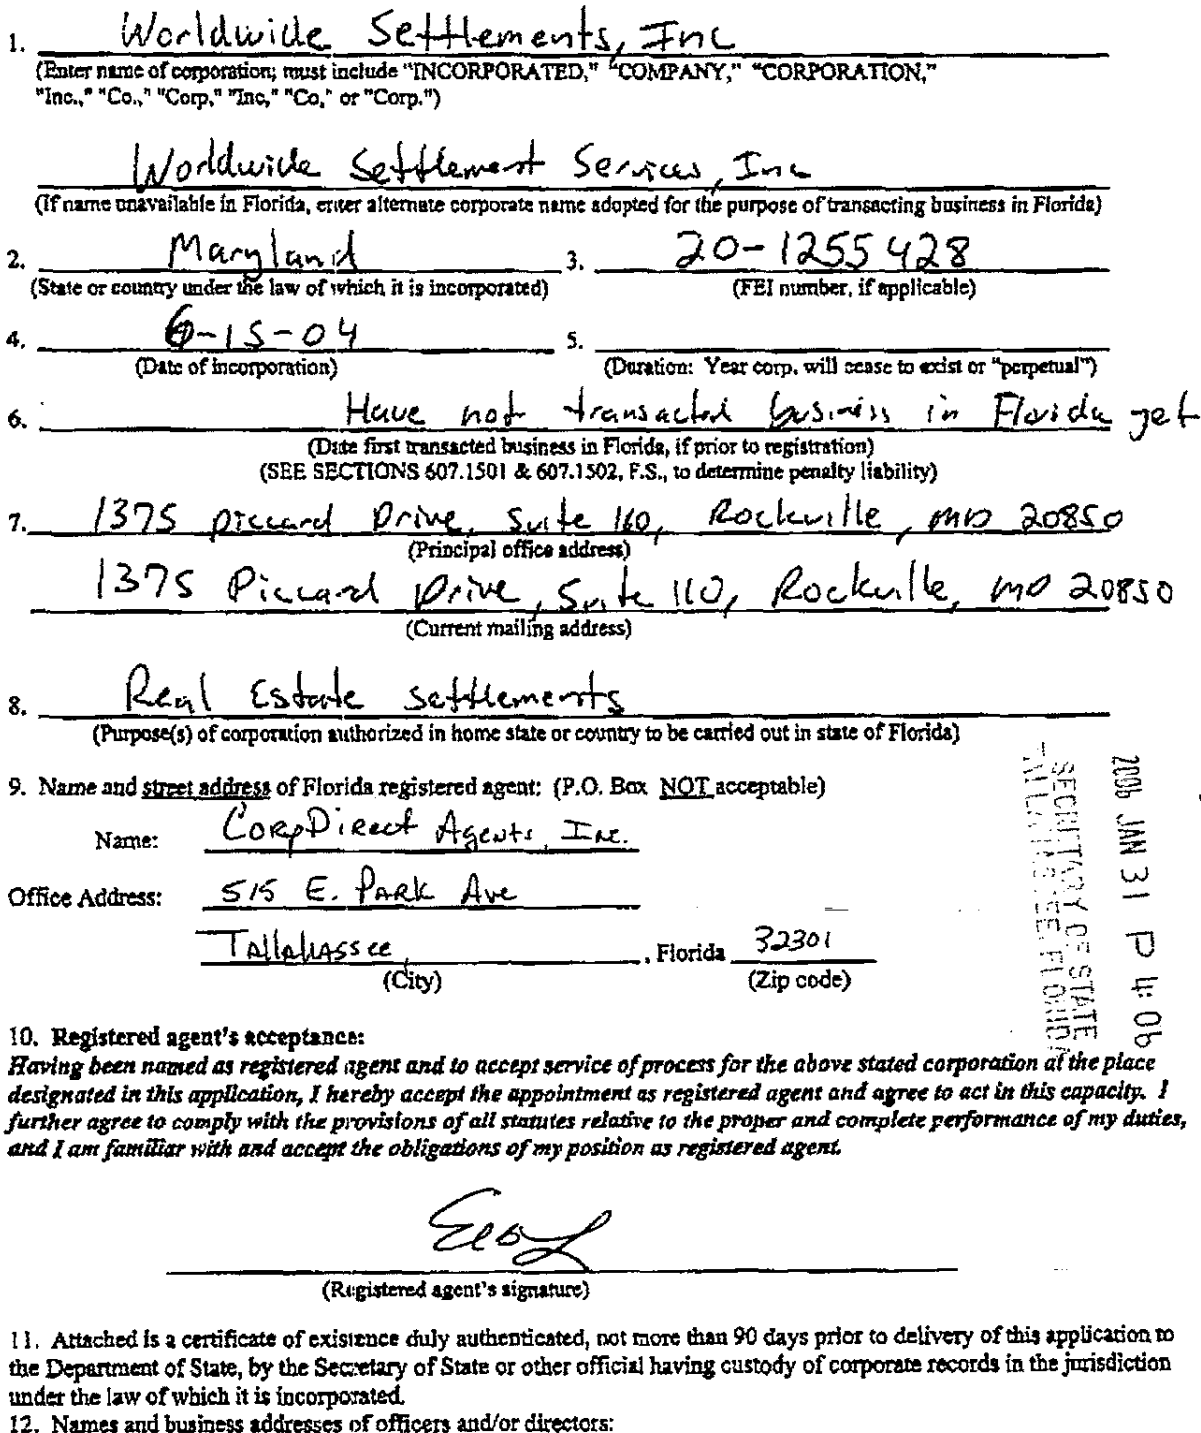 1. Worldwide Settlements, Inc
(Enter name of corporation; must include "INCORPORATED," "COMPANY," "CORPORATION,"
"Inc.," "Co.," "Corp," "Inc," "Co," or "Corp.")
Worldwide Settlement Services, Inc
(If name unavailable in Florida, enter alternate corporate name adopted for the purpose of transacting business in Florida)
2. Maryland 3. 20-1255428
(State or country under the law of which it is incorporated) (FEI number, if applicable)
4. 6-15-04 5.
(Date of incorporation) (Duration: Year corp. will cease to exist or "perpetual")
6. Have not transacted business in Florida yet
(Date first transacted business in Florida, if prior to registration)
(SEE SECTIONS 607.1501 & 607.1502, F.S., to determine penalty liability)
7. 1375 Piccard Drive, Suite 110, Rockville, MD 20850
(Principal office address)
1375 Piccard Drive, Suite 110, Rockville, MD 20850
(Current mailing address)
8. Real Estate settlements
(Purpose(s) of corporation authorized in home state or country to be carried out in state of Florida)
9. Name and street address of Florida registered agent: (P.O. Box NOT acceptable)
Name: CorpDirect Agents, Inc.
Office Address: 515 E. Park Ave
Tallahassee, , Florida 32301
(City) (Zip code)
2006 JAN 31 P 4:06
SECRETARY OF STATE
TALLAHASSEE, FLORIDA
10. Registered agent's acceptance:
Having been named as registered agent and to accept service of process for the above stated corporation at the place
designated in this application, I hereby accept the appointment as registered agent and agree to act in this capacity. I
further agree to comply with the provisions of all statutes relative to the proper and complete performance of my duties,
and I am familiar with and accept the obligations of my position as registered agent.
(Registered agent's signature)
11. Attached is a certificate of existence duly authenticated, not more than 90 days prior to delivery of this application to
the Department of State, by the Secretary of State or other official having custody of corporate records in the jurisdiction
under the law of which it is incorporated.
12. Names and business addresses of officers and/or directors: